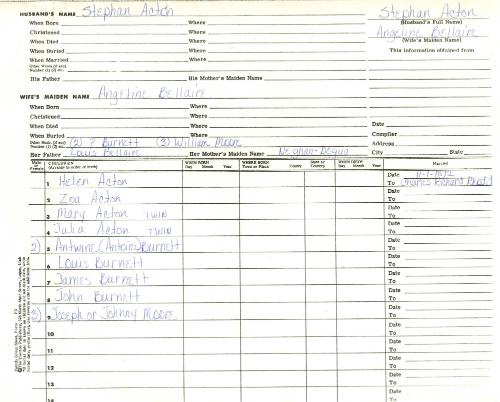 HUSBAND'S NAME Stephan Acton
Stephan Acton
(Husband's Full Name)
When Born Where
Angeline Bellaire
Christened Where
(Wife's Maiden Name)
When Died Where
This Information obtained from
When Buried Where
When Married Where
Other Wives (if any)
Number (1) (2) etc.
His Father His Mother's Maiden Name
WIFE'S MAIDEN NAME Angeline Bellaire
When Born Where
Christened Where
When Died Where
Date
When Buried Where
Compiler
Other Husb. (if any)
Number (1) (2) etc. (2) ? Burnett (3) William Moore
Address
Her Father Louis Bellaire Her Mother's Maiden Name
City State
Male or Female CHILDREN (Arrange in order of birth) WHEN BORN Day Month Year WHERE BORN Town or Place County State or Country WHEN DIED Day Month Year Married
1 Helen Acton Date 11-1-1872
To Charles Richard
2 Zoa Acton Date
To
3 Mary Acton TWIN Date
To
4 Julia Acton TWIN Date
To
2) 5 Antwine (Antoin) Burnett Date
To
6 Louis Burnett Date
To
7 James Burnett Date
To
8 John Burnett Date
To
3) 9 Joseph or Johnny Moore Date
To
10 Date
To
11 Date
To
12 Date
To
13 Date
To
14